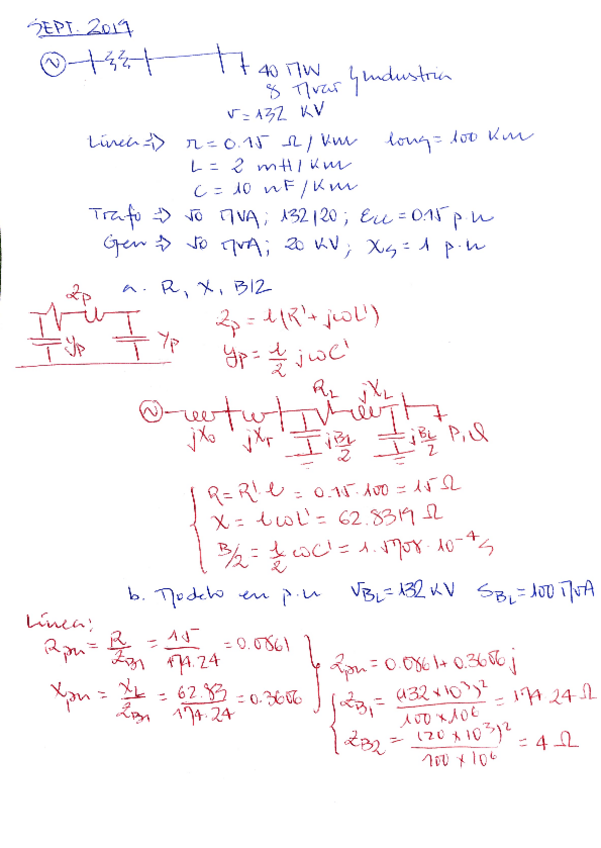 SEPT. 2019
40 MW
8 Mvar } Industria
V = 132 KV
Línea ⇒ r = 0.15 Ω/Km long = 100 Km
L = 2 mH/Km
C = 10 nF/Km
Trafo ⇒ 50 MVA; 132/20; Ecc = 0.15 p.u
Gen ⇒ 50 MVA; 20 KV; Xs = 1 p.u
a. R, X, B/2
Zp
Yp Yp
Zp = l(R' + jωL')
Yp = l/2 jωC'
RL jXL
jXs jXT jBL/2 jBL/2 P, Q
R = R'·l = 0.15·100 = 15 Ω
X = lωL' = 62.8319 Ω
B/2 = l/2 ωC' = 1.5708·10⁻⁴ S
b. Modelo en p.u VBL = 132 KV SBL = 100 MVA
Línea;
Rpu = R/ZB1 = 15/174.24 = 0.0861
Xpu = XL/ZB1 = 62.83/174.24 = 0.3606
Zpu = 0.0861 + 0.3606j
ZB1 = (132×10³)²/100×10⁶ = 174.24 Ω
ZB2 = (20×10³)²/100×10⁶ = 4 Ω